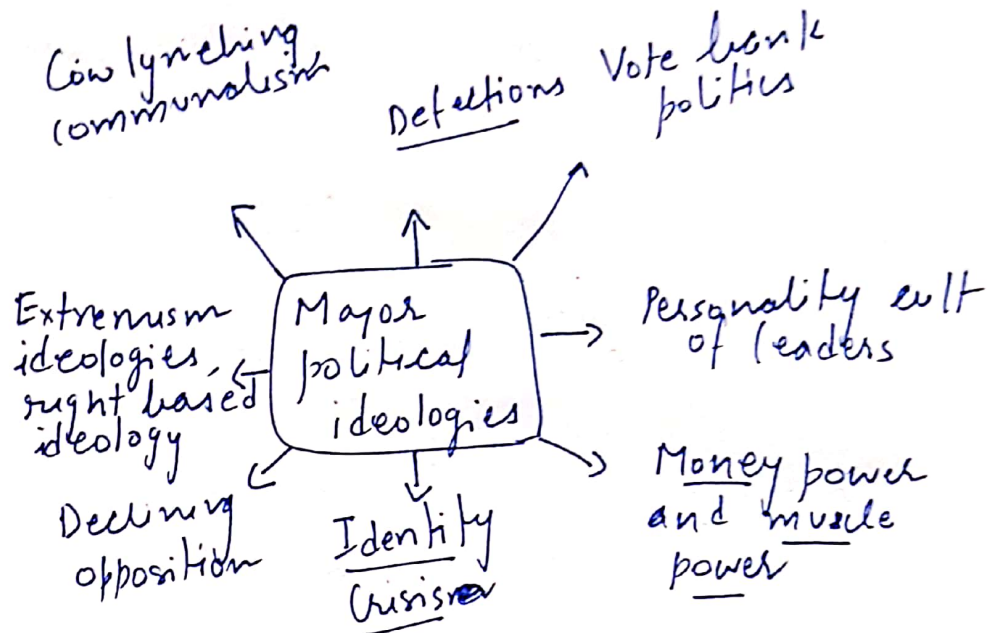 Cow lynching
communalism
Defections
Vote bank
politics
Extremism
ideologies,
right based
ideology
Major
political
ideologies
Personality cult
of leaders
Declining
opposition
Identity
Crisis
Money power
and muscle
power